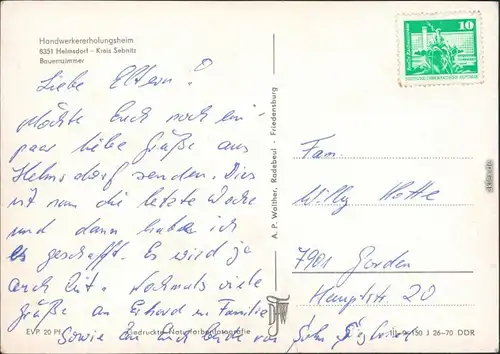 Handwerkererholungsheim
8351 Helmsdorf – Kreis Sebnitz
Bauernzimmer
Liebe Eltern!
Möchte Euch noch ein
paar liebe Grüße aus
Helmsdorf senden. Dies
ist nun die letzte Woche
und dann habe ich
es geschafft. Es wird ja
auch Zeit. Nochmals viele
Grüße an Erhard u. Familie
Sowie an Euch beide von
EVP 20 Pf.
Gedruckte Naturfarbenfotografie
A. P. Walther, Radebeul - Friedensburg
10
Fam.
Willy
7901
Hauptstr. 20
J 26–70 DDR